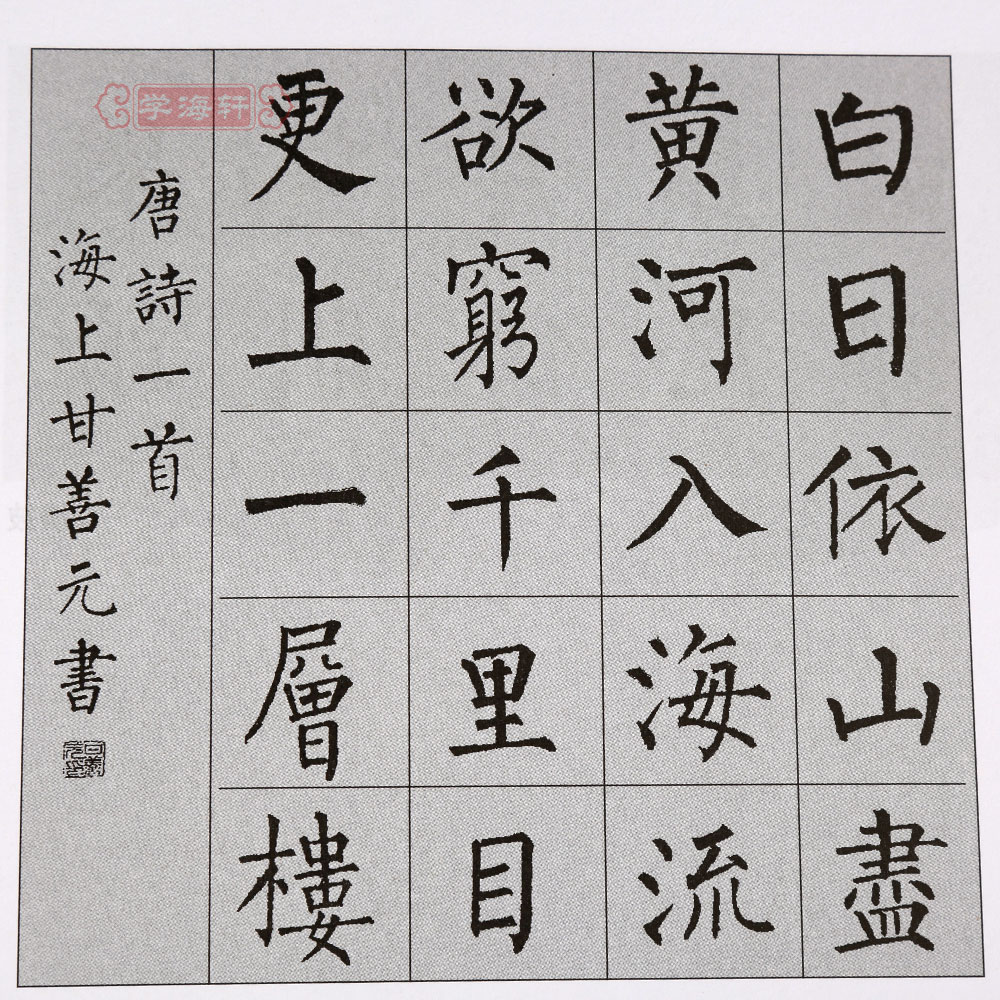 白日依山盡
黄河入海流
欲窮千里目
更上一層樓
唐詩一首
海上甘善元書
学海轩